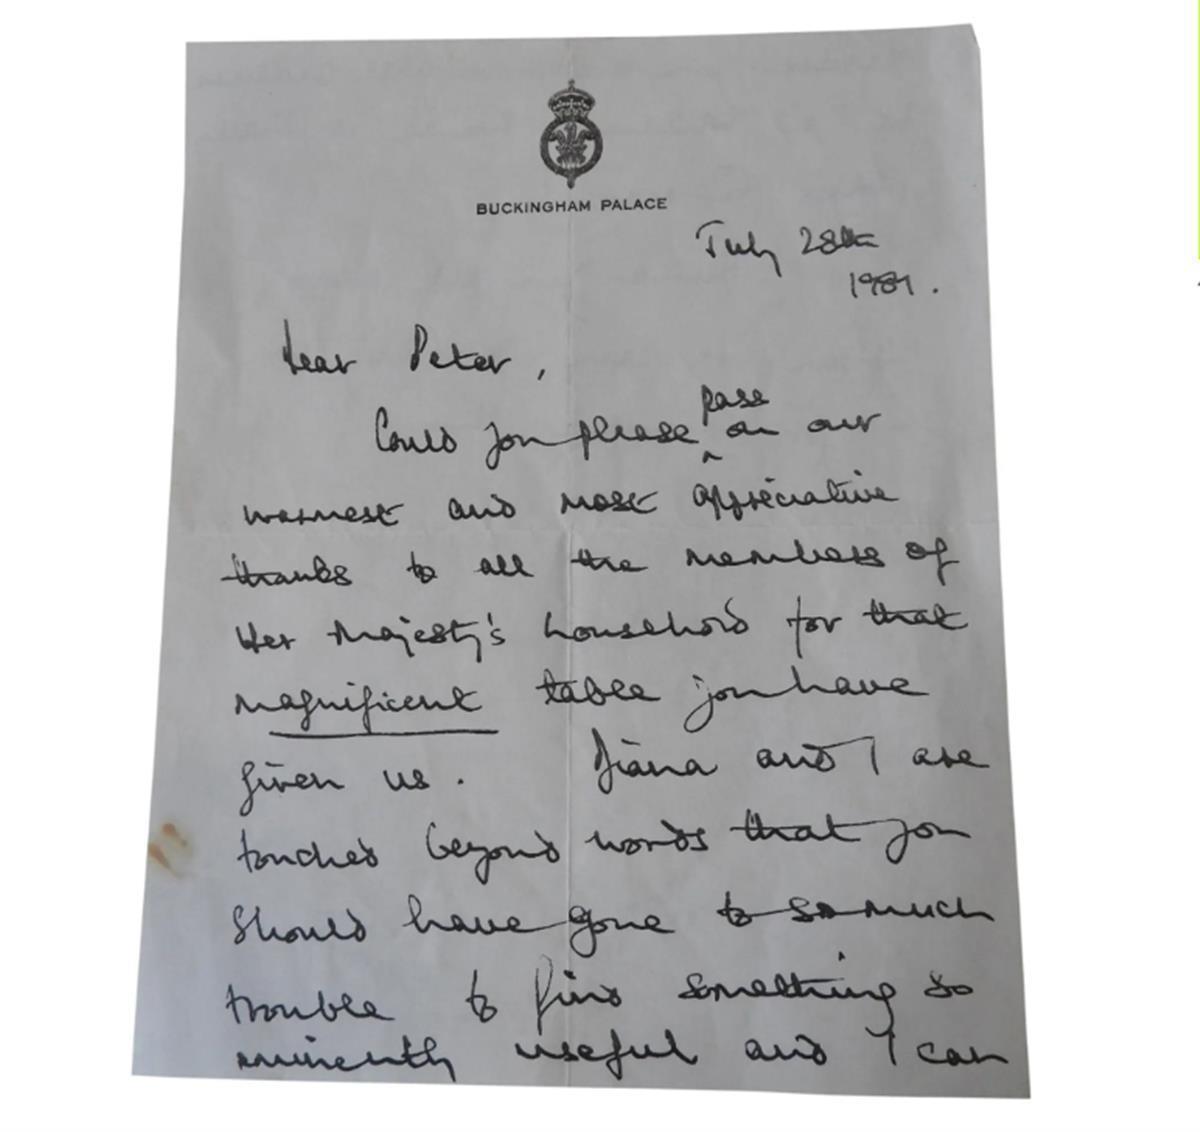 BUCKINGHAM PALACE
July 28th
1981.
Dear Peter,
Could you please pass on our
warmest and most appreciative
thanks to all the members of
Her Majesty's household for that
magnificent table you have
given us. Diana and I are
touched beyond words that you
should have gone to so much
trouble to find something so
eminently useful and I can